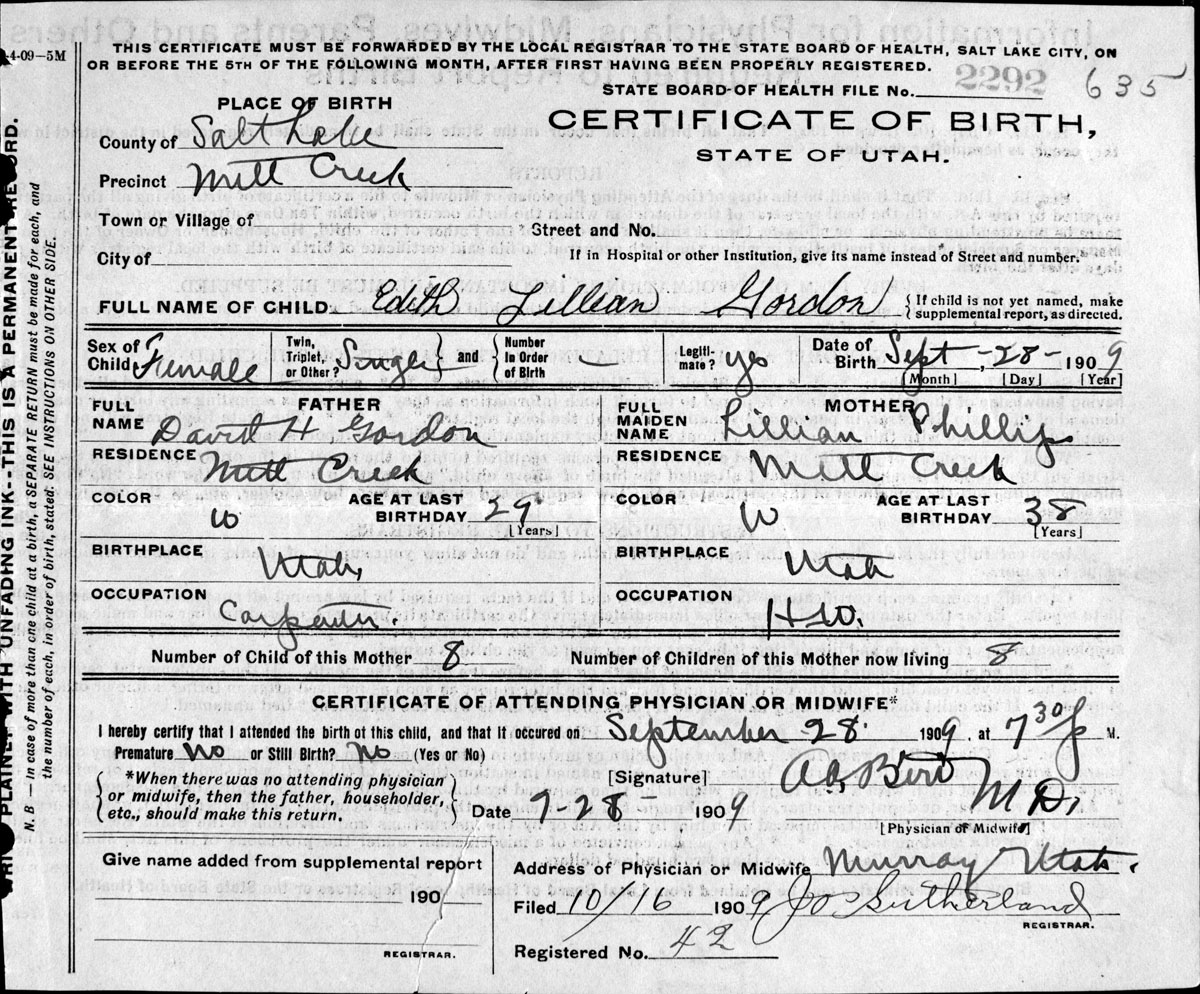 -4-09—5M
THIS CERTIFICATE MUST BE FORWARDED BY THE LOCAL REGISTRAR TO THE STATE BOARD OF HEALTH, SALT LAKE CITY, ON
OR BEFORE THE 5TH OF THE FOLLOWING MONTH, AFTER FIRST HAVING BEEN PROPERLY REGISTERED.
STATE BOARD OF HEALTH FILE No. 2292 635
PLACE OF BIRTH
CERTIFICATE OF BIRTH,
STATE OF UTAH.
County of Salt Lake
Precinct Mill Creek
Town or Village of
Street and No.
City of
If in Hospital or other Institution, give its name instead of Street and number.
FULL NAME OF CHILD Edith Lillian Gordon { If child is not yet named, make supplemental report, as directed.
Sex of Child Female Twin, Triplet, or Other? Single } and { Number in Order of Birth — Legitimate? yes Date of Birth Sept - 28 - 1909
[Month] [Day] [Year]
FATHER
FULL NAME David H Gordon
RESIDENCE Mill Creek
COLOR W AGE AT LAST BIRTHDAY 29 [Years]
BIRTHPLACE Utah,
OCCUPATION Carpenter.
MOTHER
FULL MAIDEN NAME Lillian Phillips
RESIDENCE Mill Creek
COLOR W AGE AT LAST BIRTHDAY 38 [Years]
BIRTHPLACE Utah
OCCUPATION H W.
Number of Child of this Mother 8 Number of Children of this Mother now living 8
CERTIFICATE OF ATTENDING PHYSICIAN OR MIDWIFE*
I hereby certify that I attended the birth of this child, and that it occured on September 28 1909, at 7 30 P M.
Premature No or Still Birth? No (Yes or No)
{ *When there was no attending physician or midwife, then the father, householder, etc., should make this return. }
[Signature] M D.
Date 9-28 1909
[Physician of Midwife]
Give name added from supplemental report
190
REGISTRAR.
Address of Physician or Midwife Murray Utah.
Filed 10/16 1909 Sutherland
REGISTRAR.
Registered No. 42
WRITE PLAINLY WITH UNFADING INK--THIS IS A PERMANENT RECORD.
N. B.—In case of more than one child at a birth, a SEPARATE RETURN must be made for each, and
the number of each, in order of birth, stated. SEE INSTRUCTIONS ON OTHER SIDE.